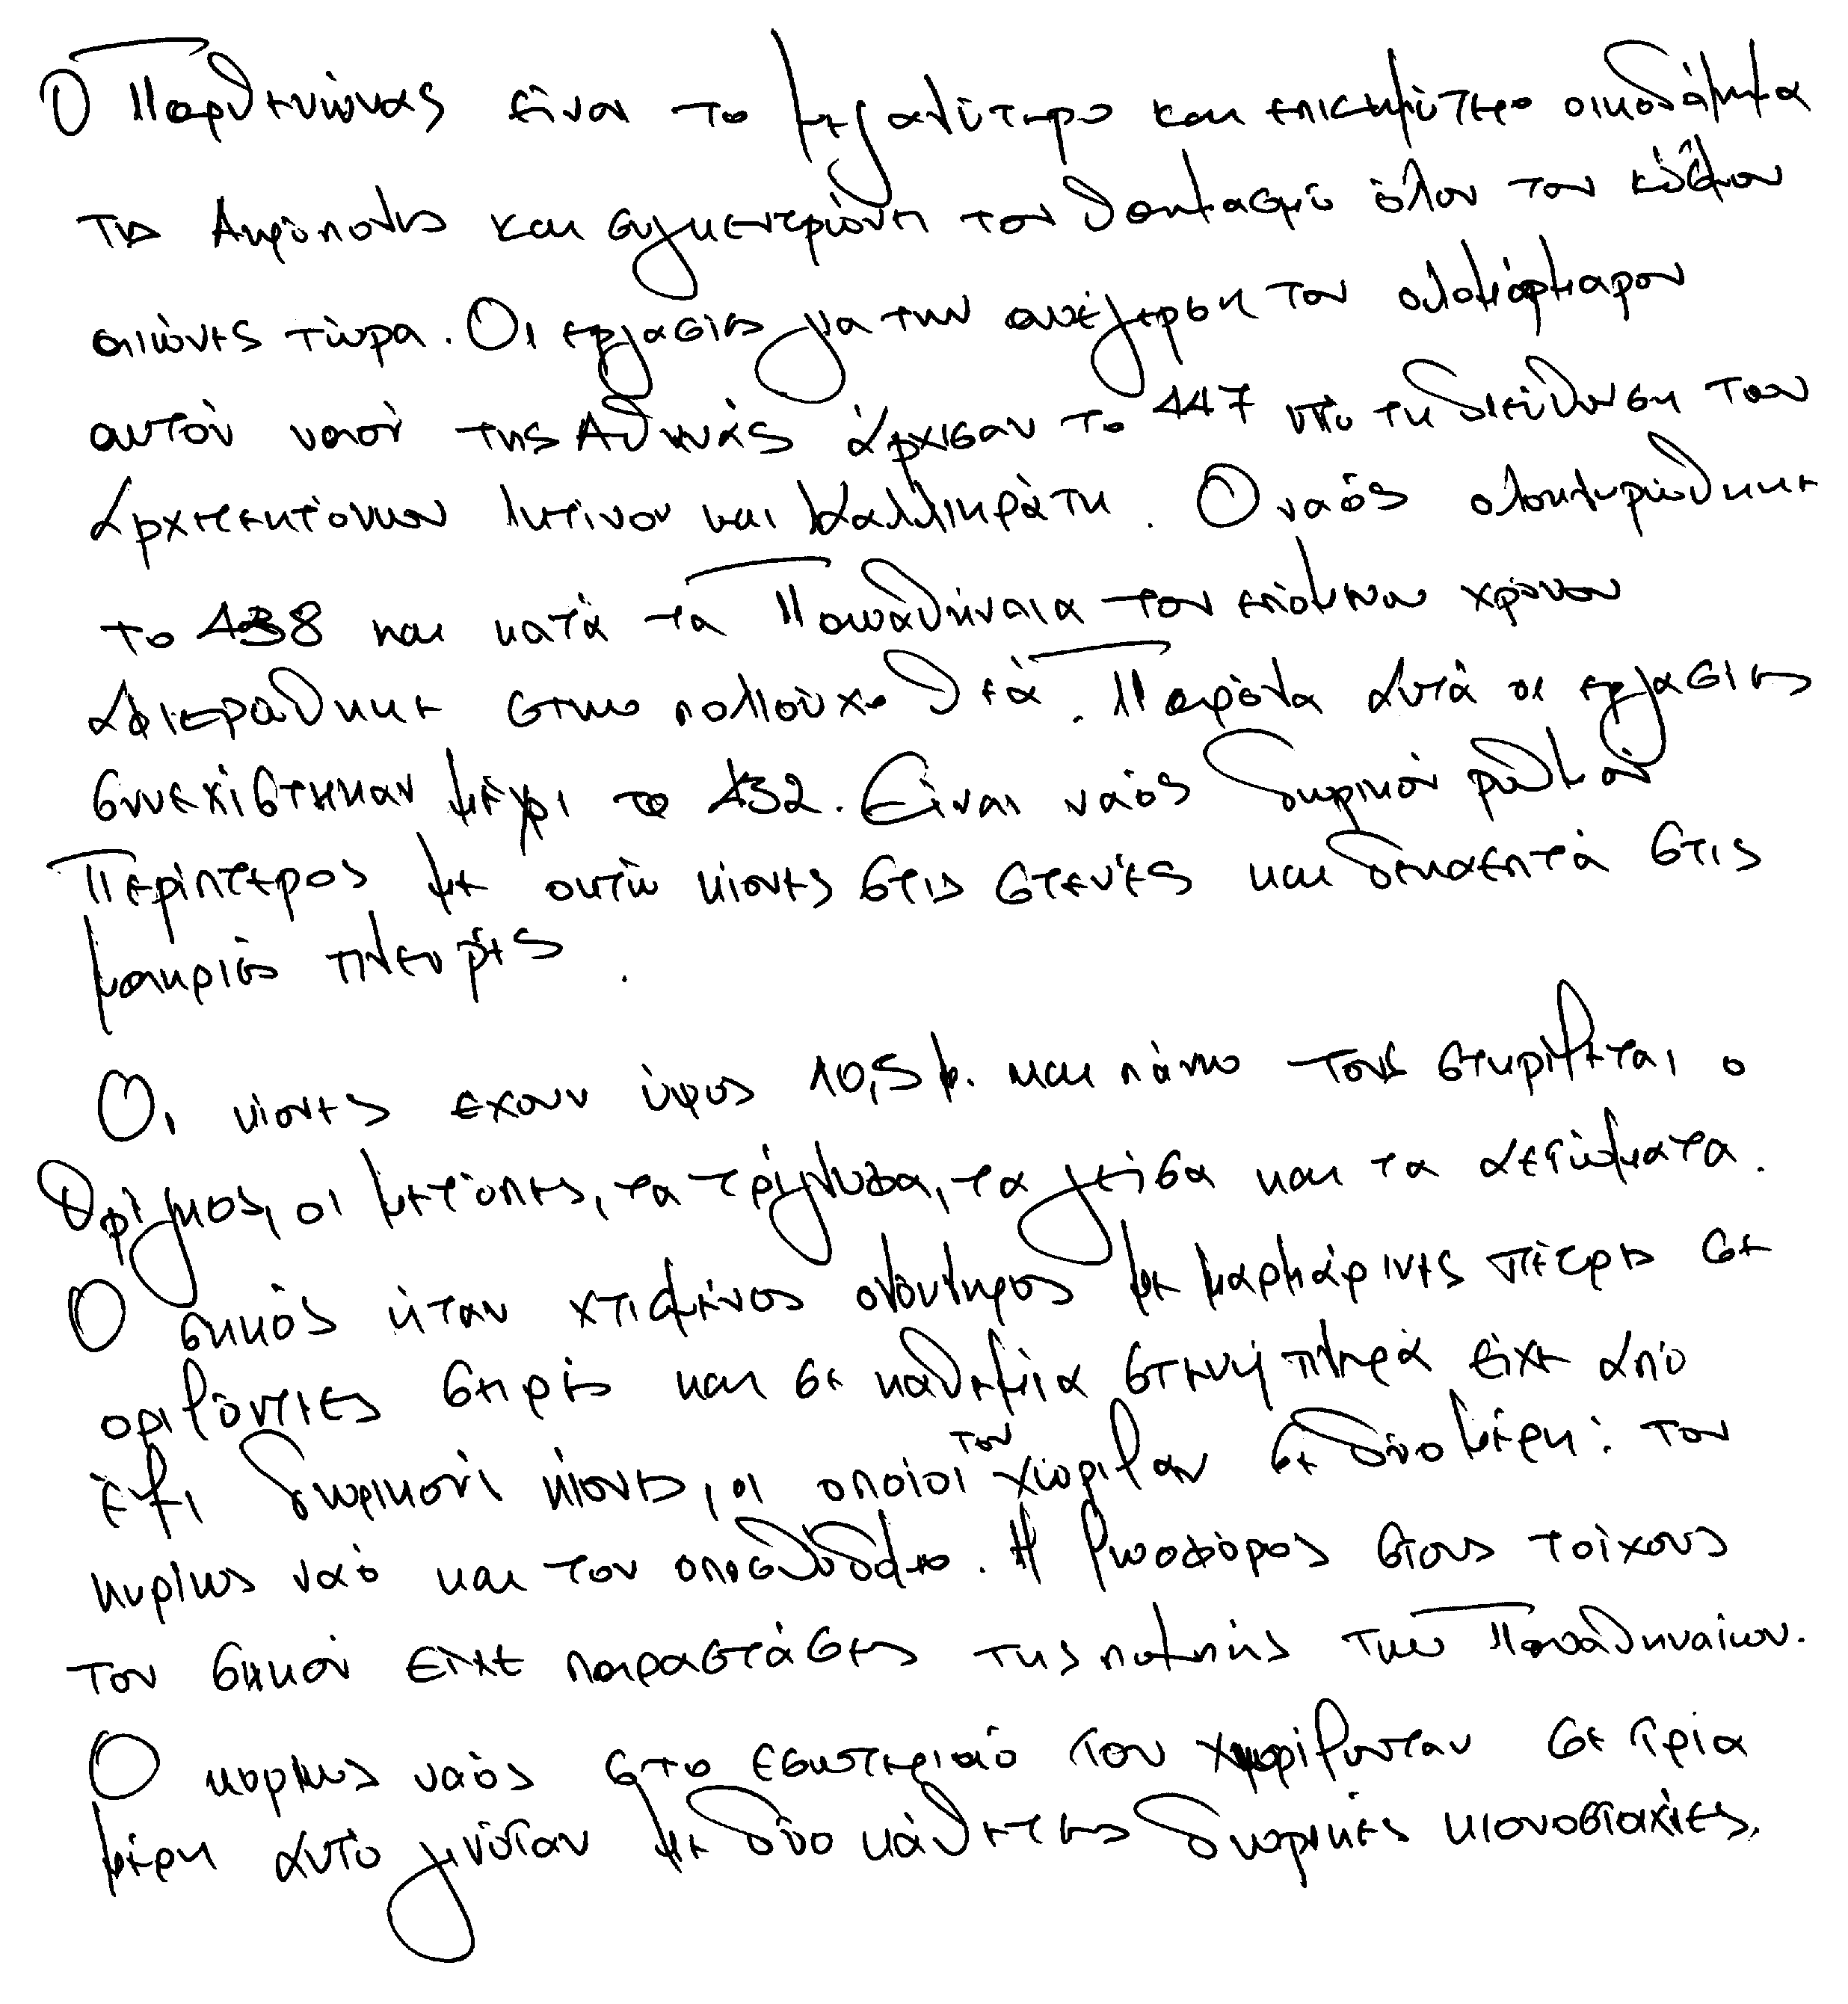 Ο Παρθενώνας είναι το μεγαλύτερο και επισημότερο οικοδόμημα
της Ακρόπολης και συγκεντρώνει τον θαυμασμό όλου του κόσμου
αιώνες τώρα. Οι εργασίες για την ανέγερση του ολομάρμαρου
αυτού ναού της Αθηνάς άρχισαν το 447 υπό τη διεύθυνση των
αρχιτεκτόνων Ικτίνου και Καλλικράτη. Ο ναός ολοκληρώθηκε
το 438 και κατά τα Παναθήναια του επόμενου χρόνου
αφιερώθηκε στην πολιούχο θεά. Παρόλα αυτά οι εργασίες
συνεχίστηκαν μέχρι το 432. Είναι ναός δωρικού ρυθμού
Περίπτερος με οκτώ κίονες στις στενές και δεκαεπτά στις
μακριές πλευρές.
Οι κίονες έχουν ύψος 10,5 μ. και πάνω τους στηρίζεται ο
θριγκός, οι μετόπες, τα τρίγλυφα, τα γείσα και τα αετώματα.
Ο σηκός ήταν χτισμένος ολόκληρος με μαρμάρινες πέτρες σε
οριζόντιες σειρές και σε καθεμία στενή πλευρά είχε από
έξι δωρικούς κίονες, οι οποίοι τον χώριζαν σε δύο μέρη: τον
κυρίως ναό και τον οπισθόδομο. Η ζωοφόρος στους τοίχους
του σηκού είχε παραστάσεις της πομπής των Παναθηναίων.
Ο κυρίως ναός στο εσωτερικό του χωριζόνταν σε τρία
μέρη αυτό γινόταν με δύο κάθετες δωρικές κιονοστοιχίες.